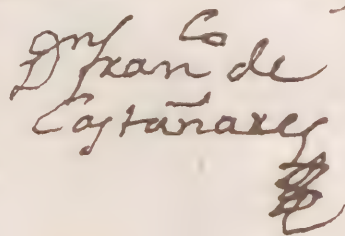 Dn franco de
Castañares